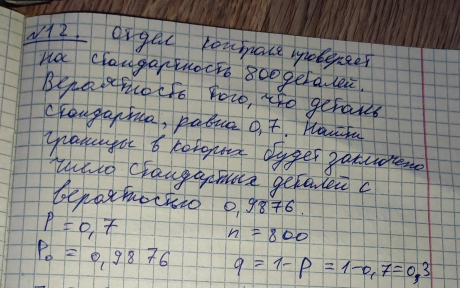 №12. Отдел контроля проверяет
на стандартность 800 деталей.
Вероятность того, что деталь
стандартна, равна 0,7. Найти
границы в которых будет заключено
число стандартных деталей с
вероятностью 0,9876.
P = 0,7 n = 800
P₀ = 0,9876 q = 1-P = 1-0,7=0,3